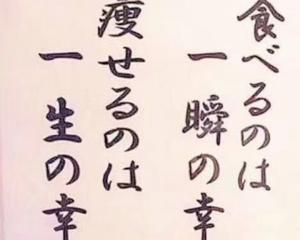 食べるのは
一瞬の幸
痩せるのは
一生の幸